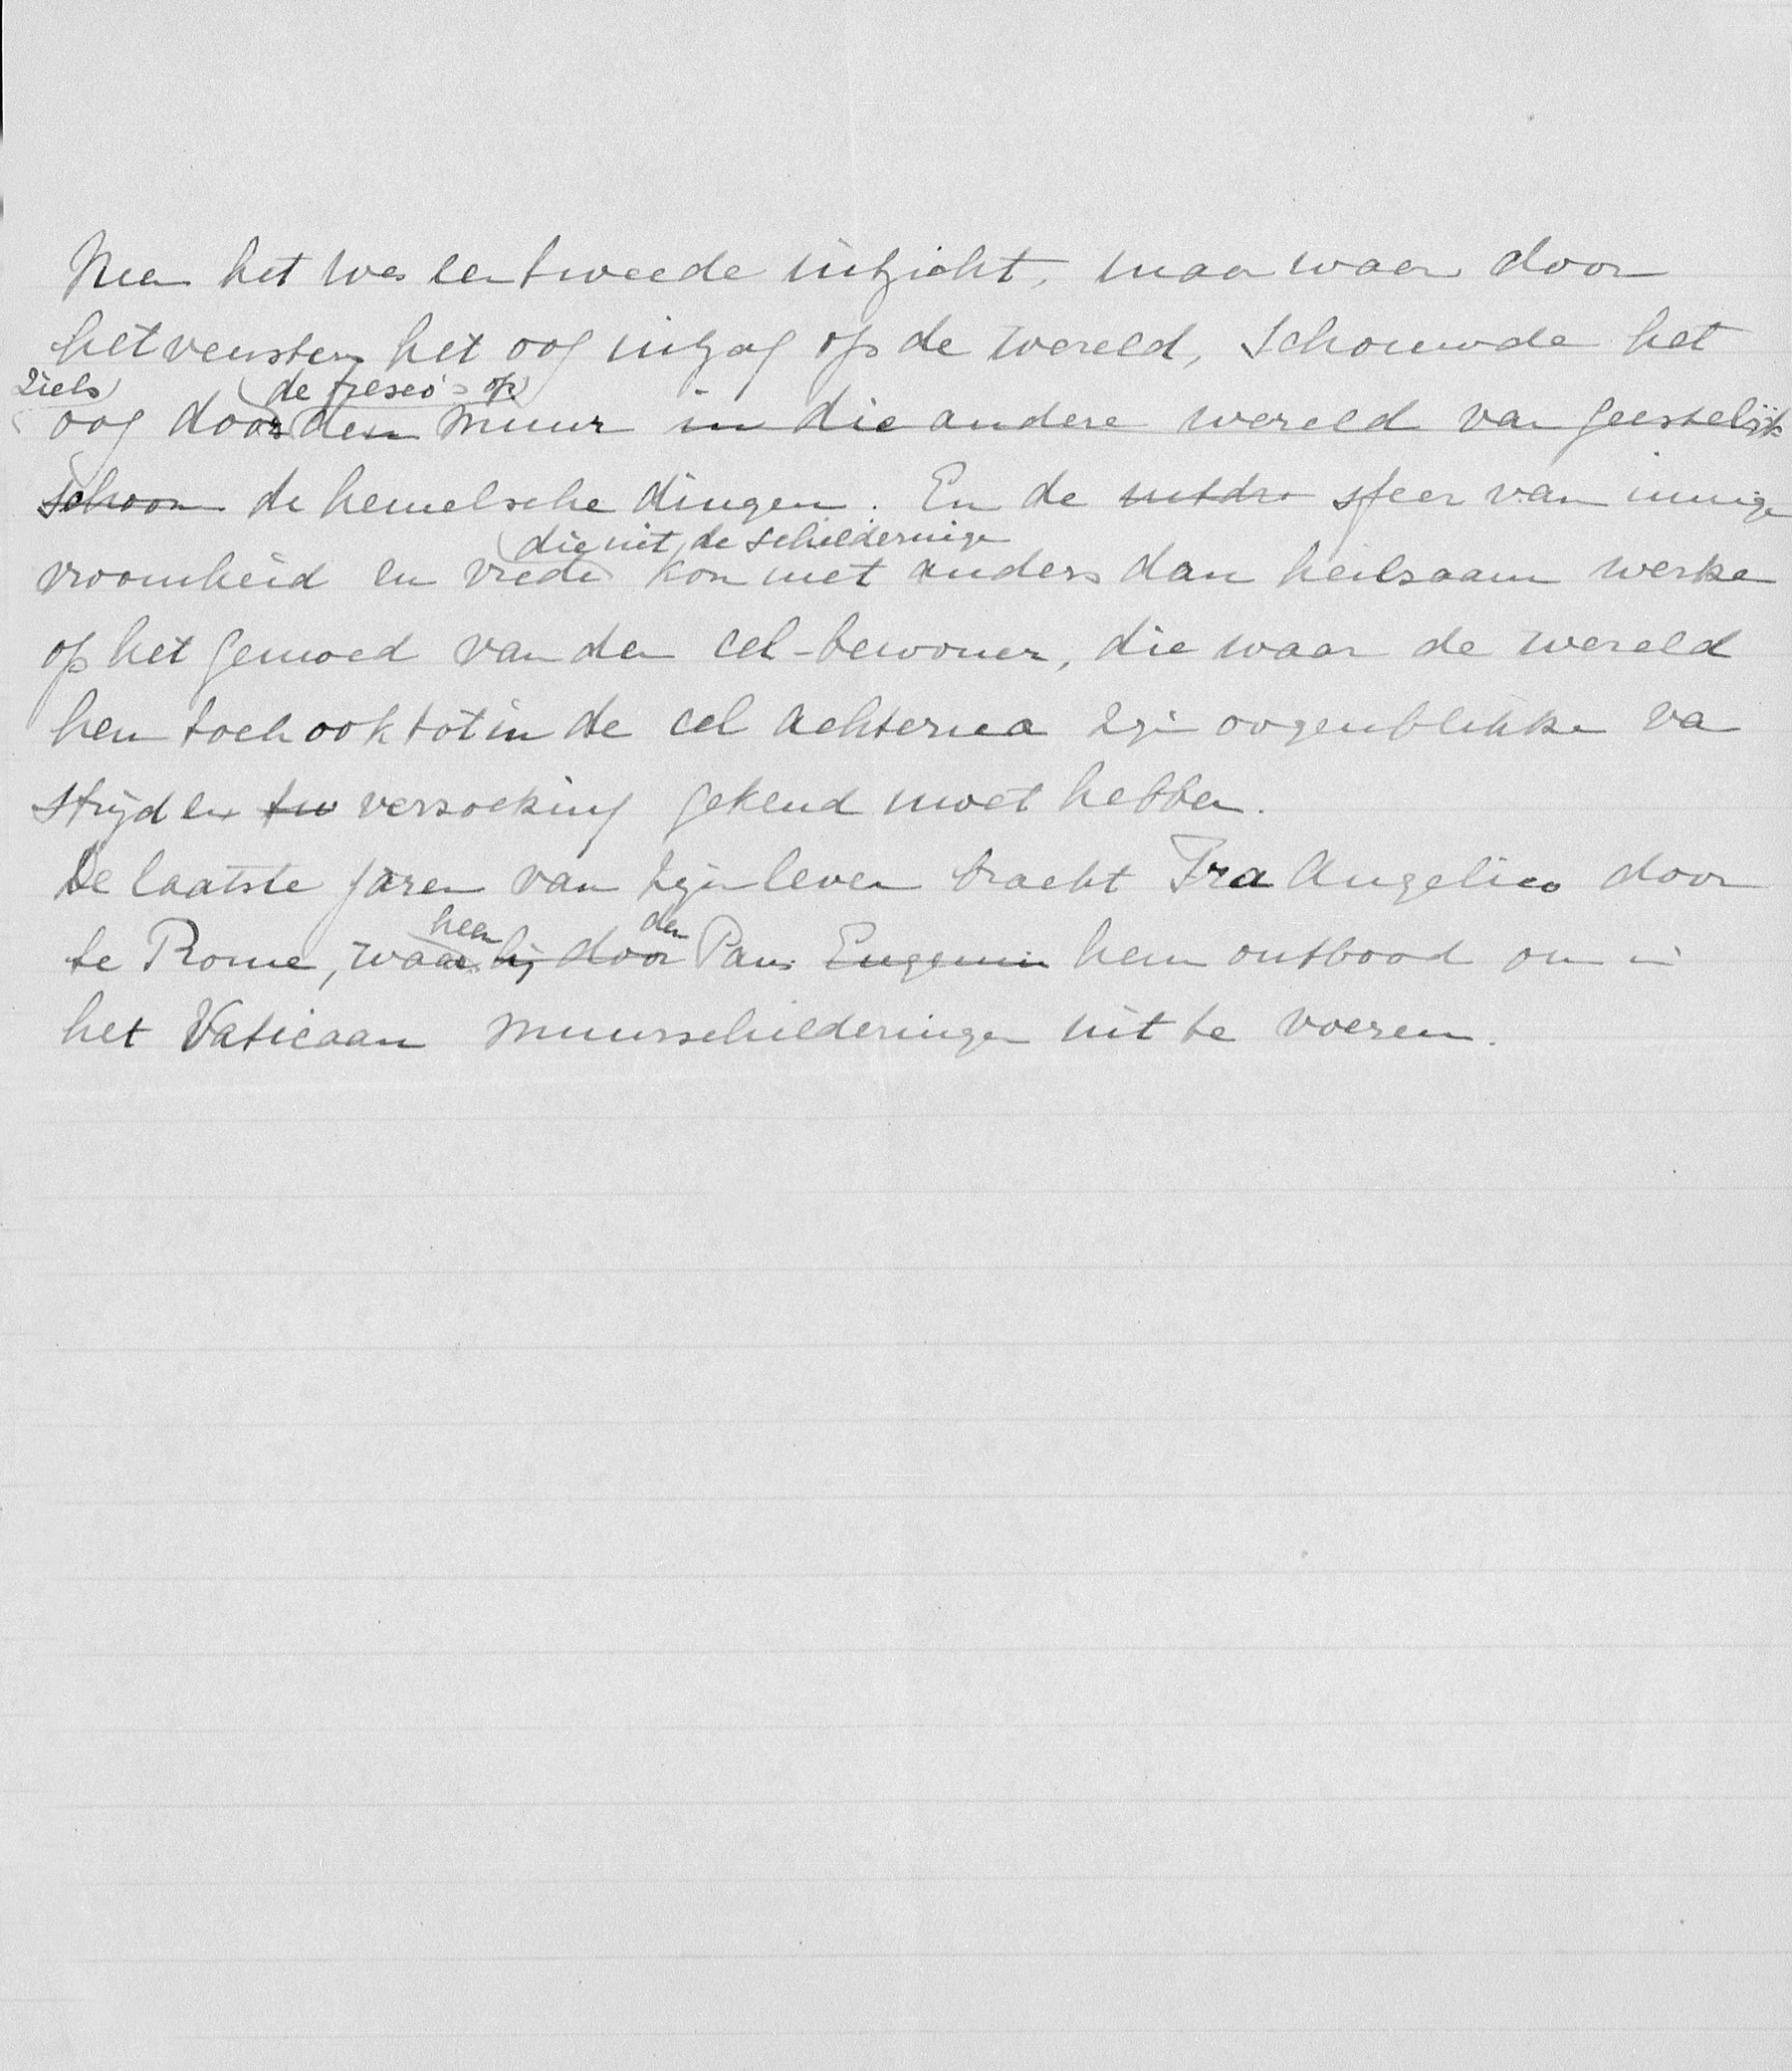 Neen het was een tweede uitzicht, maar waar door
het venster het oog uitzag op de wereld, schouwde het
ziels de fresco's op
oog door den muur in die andere wereld van geestelijk
schoon de hemelsche dingen. En de uitdr sfeer van innige
die uit de schilderingen
vroomheid en vrede kon niet anders dan heilzaam werken
op het gemoed van den cel-bewoner, die waar de wereld
hem toch ook tot in de cel achterna zijn oogenblikken van
strijd en tw verzoeking gekend moet hebben.
De laatste jaren van zijn leven bracht Fra Angelico door
heen den
te Rome, waar hij door Paus Eugenius hem ontbood om in
het Vaticaan muurschilderingen uit te voeren.